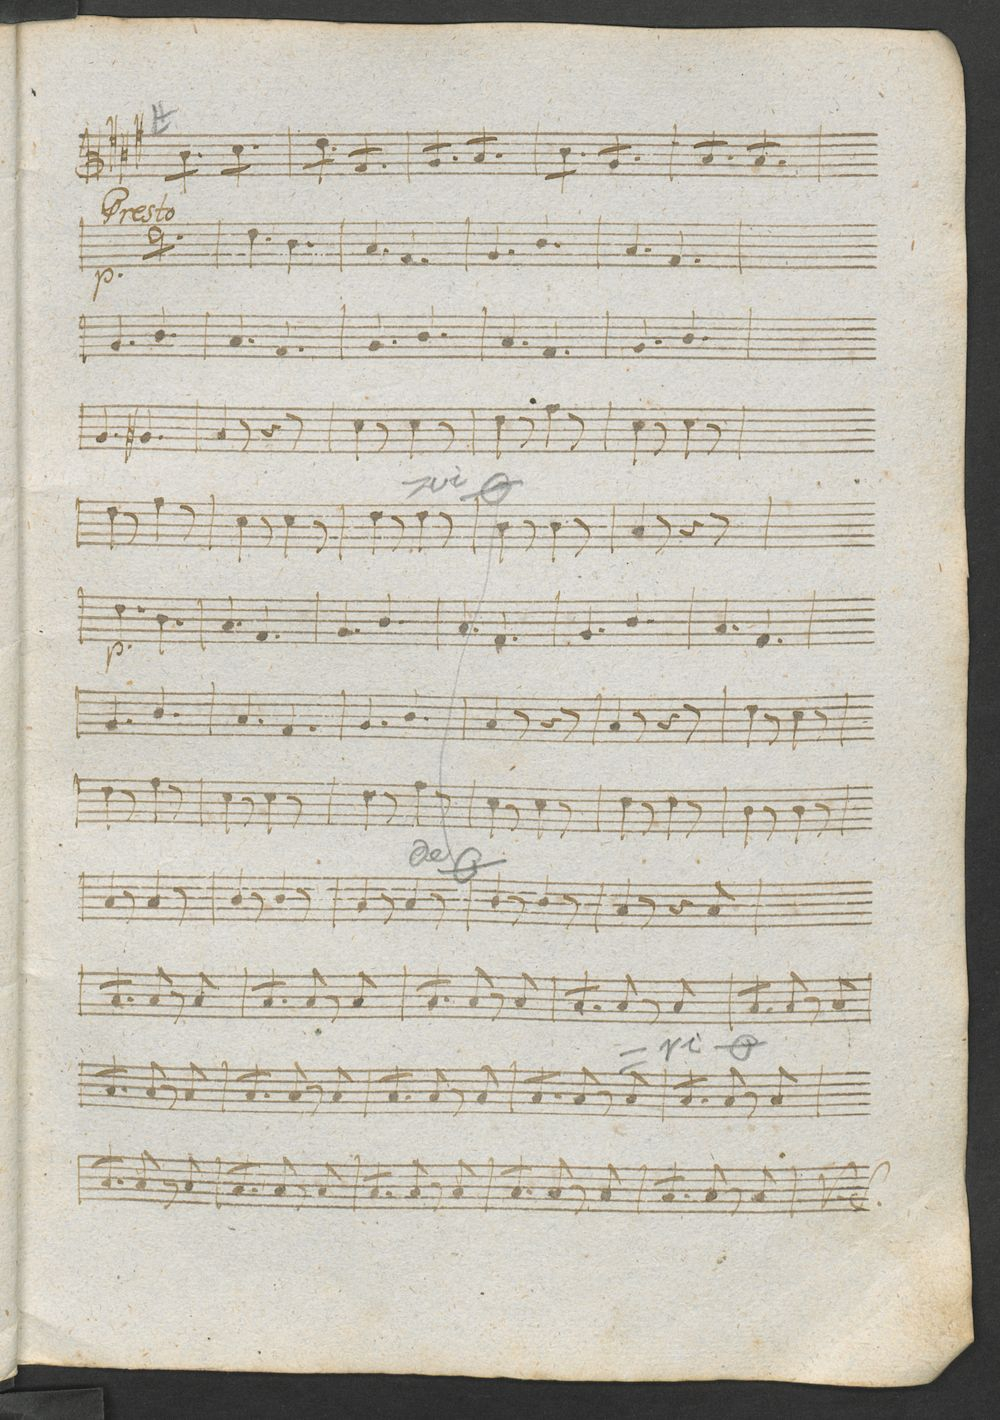 Presto
p.
vi
p.
de
vi